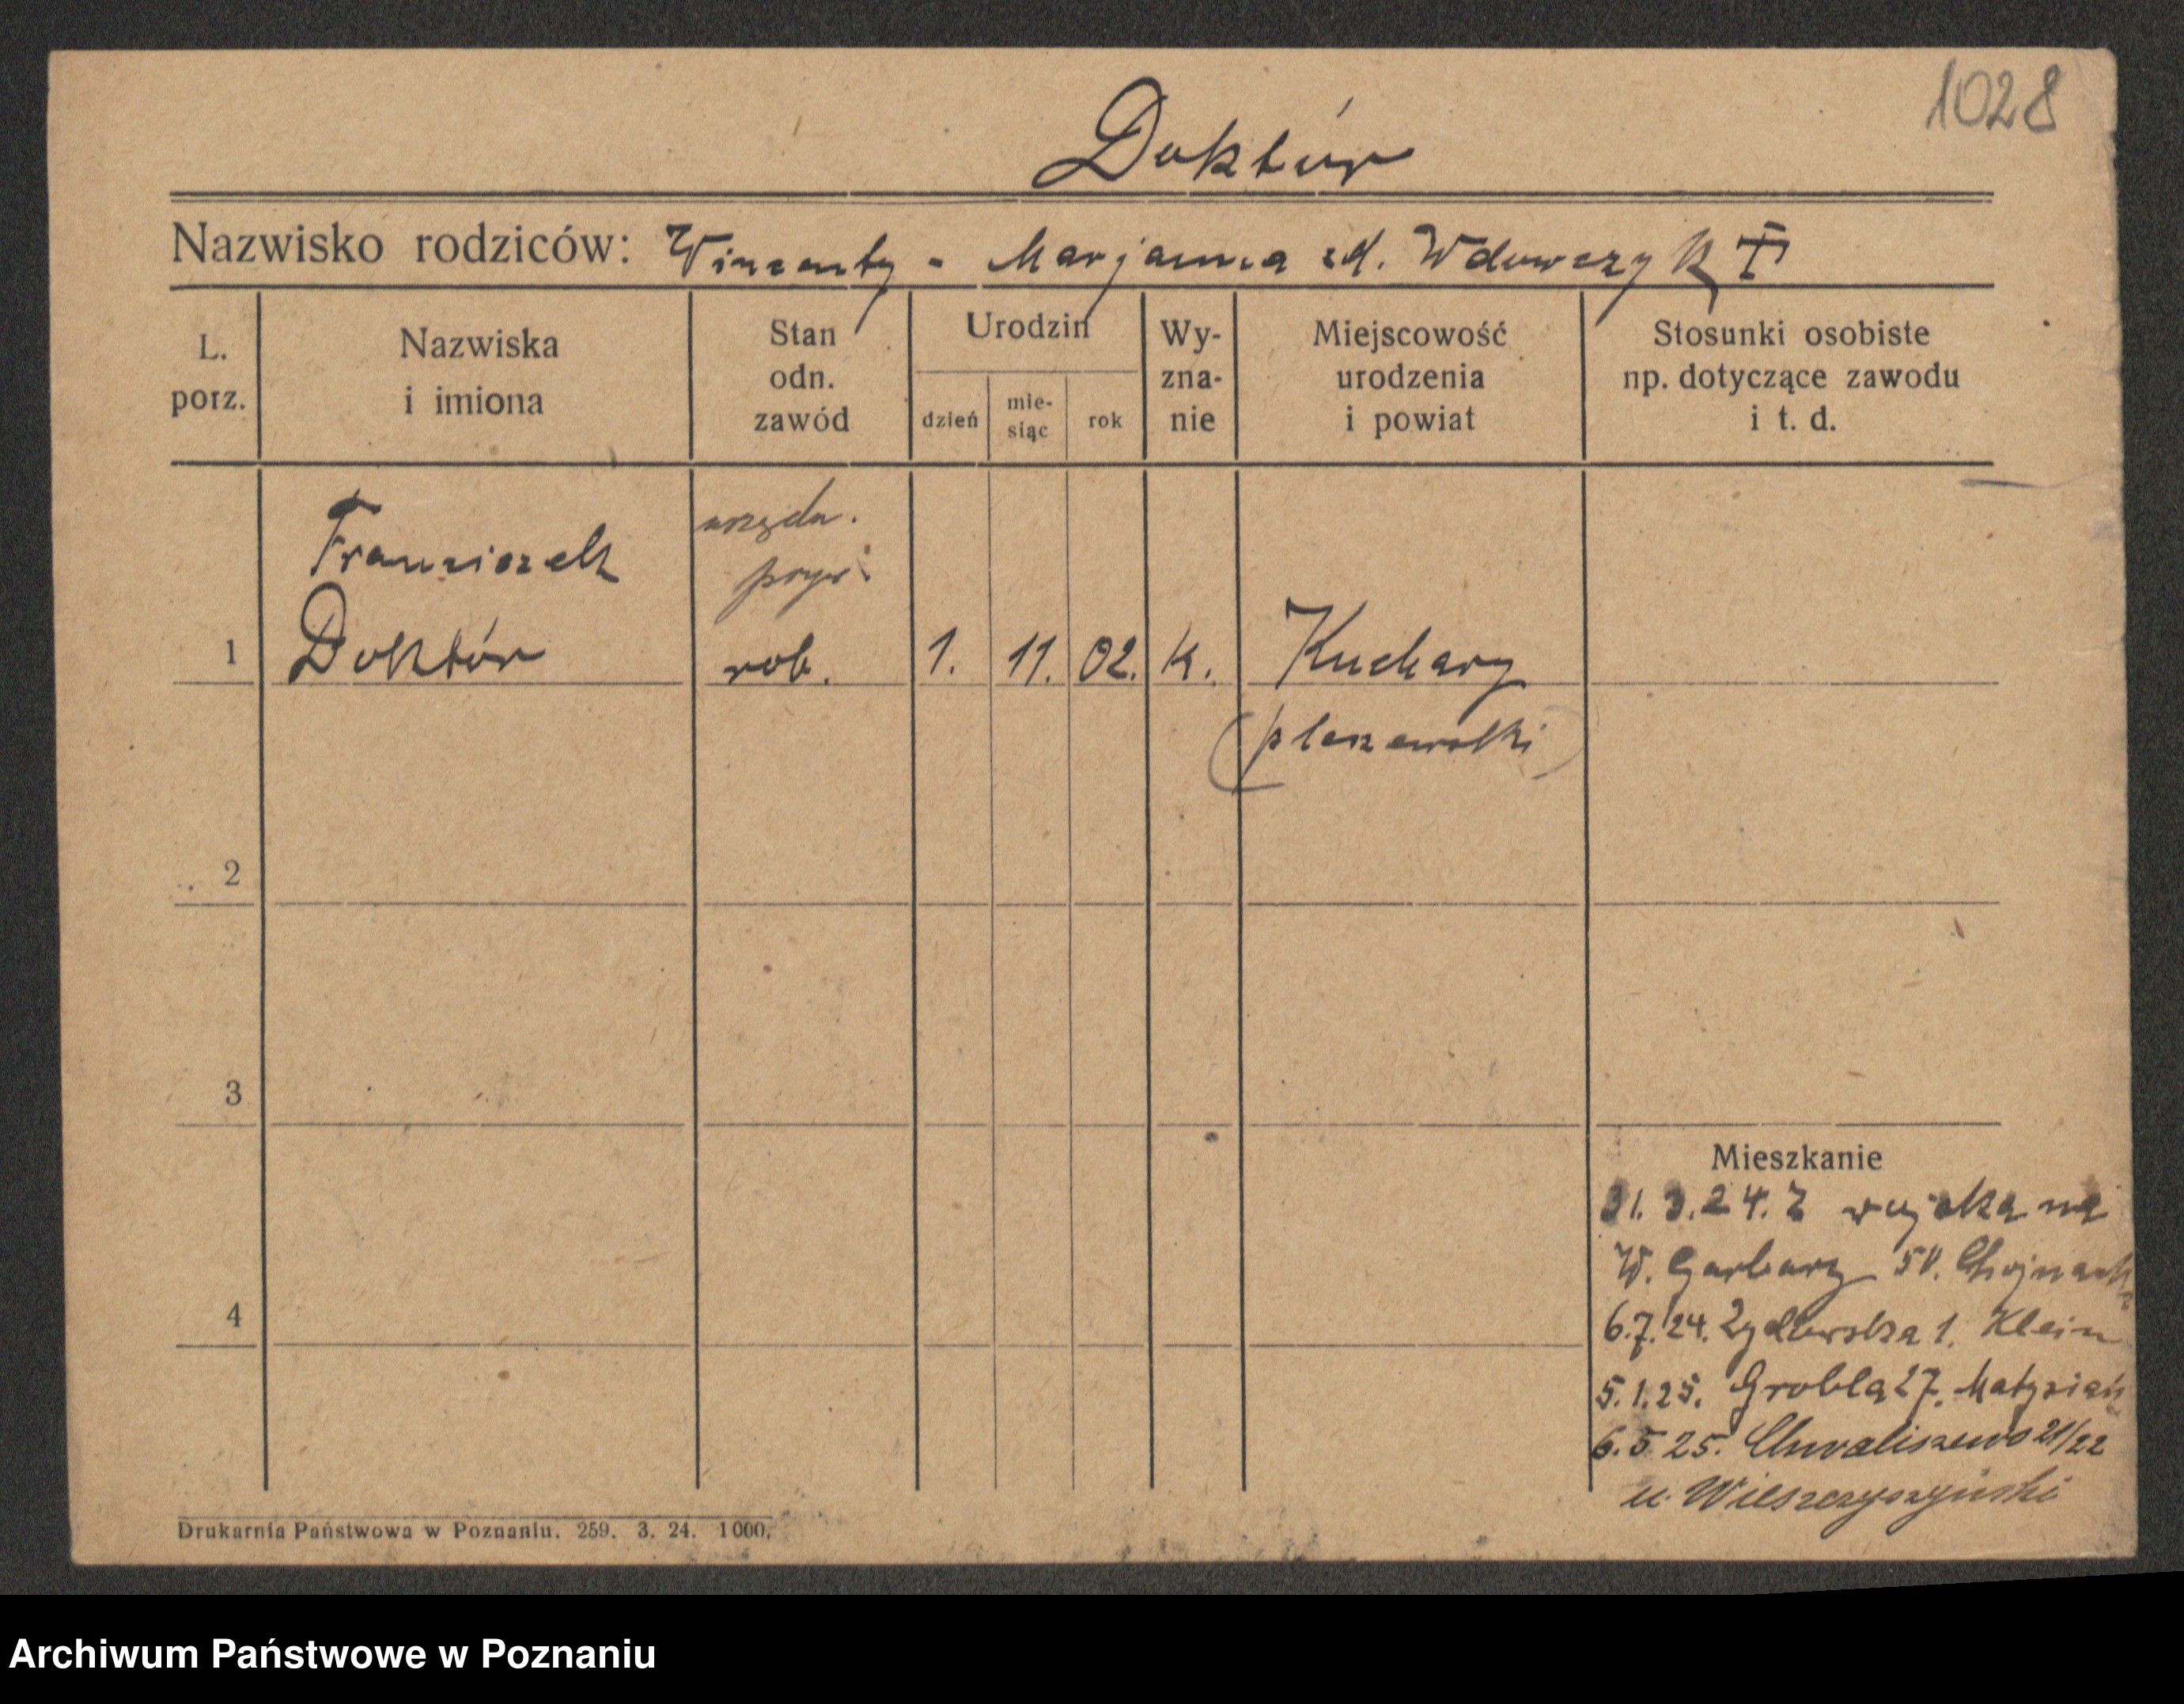 1028
Doktór
Nazwisko rodziców: Winzenty - Marjanna zd. Wdowczyk
L. porz.
Nazwiska i imiona
Stan odn. zawód
Urodzin
dzień
mie-
siąc
rok
Wy-
zna-
nie
Miejscowość urodzenia i powiat
Stosunki osobiste np. dotyczące zawodu i t. d.
urzędn.
pryw.
Franziszek
1 Doktór rob. 1. 11. 02. k. Kuchary
(pleszewski)
2
3
4
Mieszkanie
31.3.24. z wojska na
W. Garbary 50.
6.7.24. Żydowska 1. Klein
5.1.25. Grobla 27. Matysiak
6.5.25. Chwaliszewo 21/22
u. Wieszczyszyński
Drukarnia Państwowa w Poznaniu. 259. 3. 24. 1000.
Archiwum Państwowe w Poznaniu